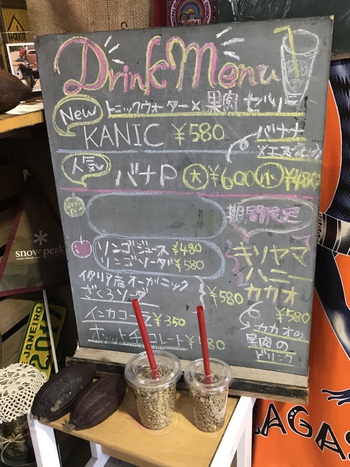 Drink Menu
New
トニックウォーター×果肉ゼリー
KANIC ¥580
バナナ
×エスプレッソ
人気
バナP 大¥600 小¥480
期間限定
リンゴジュース ¥480
リンゴソーダ ¥580
キソヤマ
ハニー
カカオ
¥580
カカオの
果肉の
ドリンク
イタリア産オーガニック
ざくろソーダ ¥580
インカコーラ ¥350
ホットチョコレート
snow peak
JANEIRO